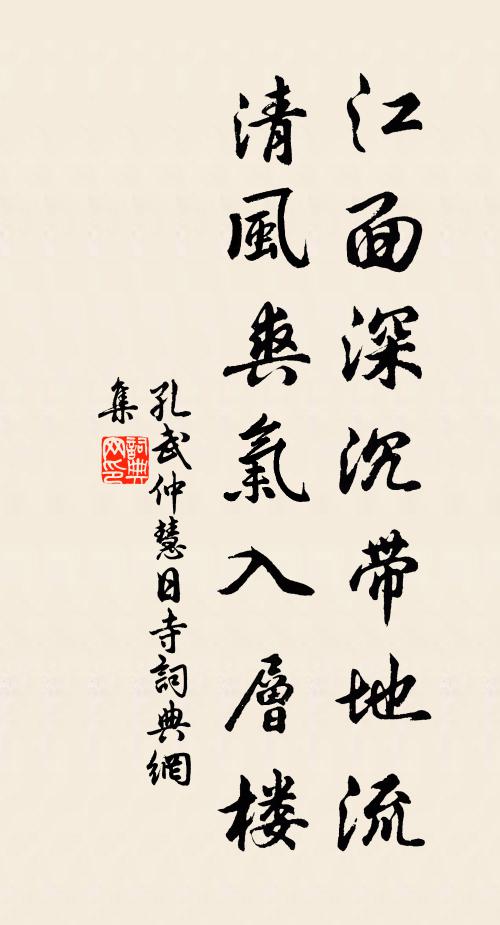 江面深沉带地流
清風爽氣入層楼
孔武仲慧日寺詞典網
集
詞典
网印